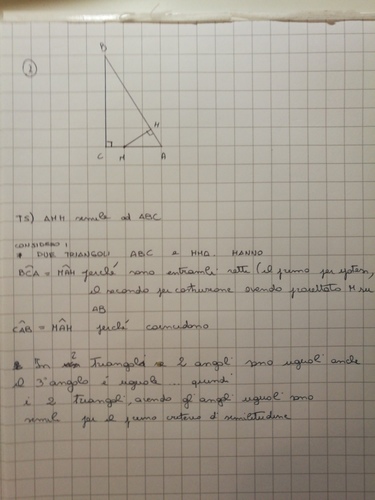 1
B
H
C M A
TS) AMH simile ad ABC
CONSIDERO I
DUE TRIANGOLI ABC e MHA. HANNO
BĈA = MÂH perché sono entrambi retti (il primo per ipotesi,
il secondo per costruzione avendo proiettato M su
AB
CÂB = MÂH perché coincidono
In 2 triangoli 2 angoli sono uguali anche
il 3° angolo è uguale ... quindi
i 2 triangoli, avendo gli angoli uguali sono
simili per il primo criterio di similitudine